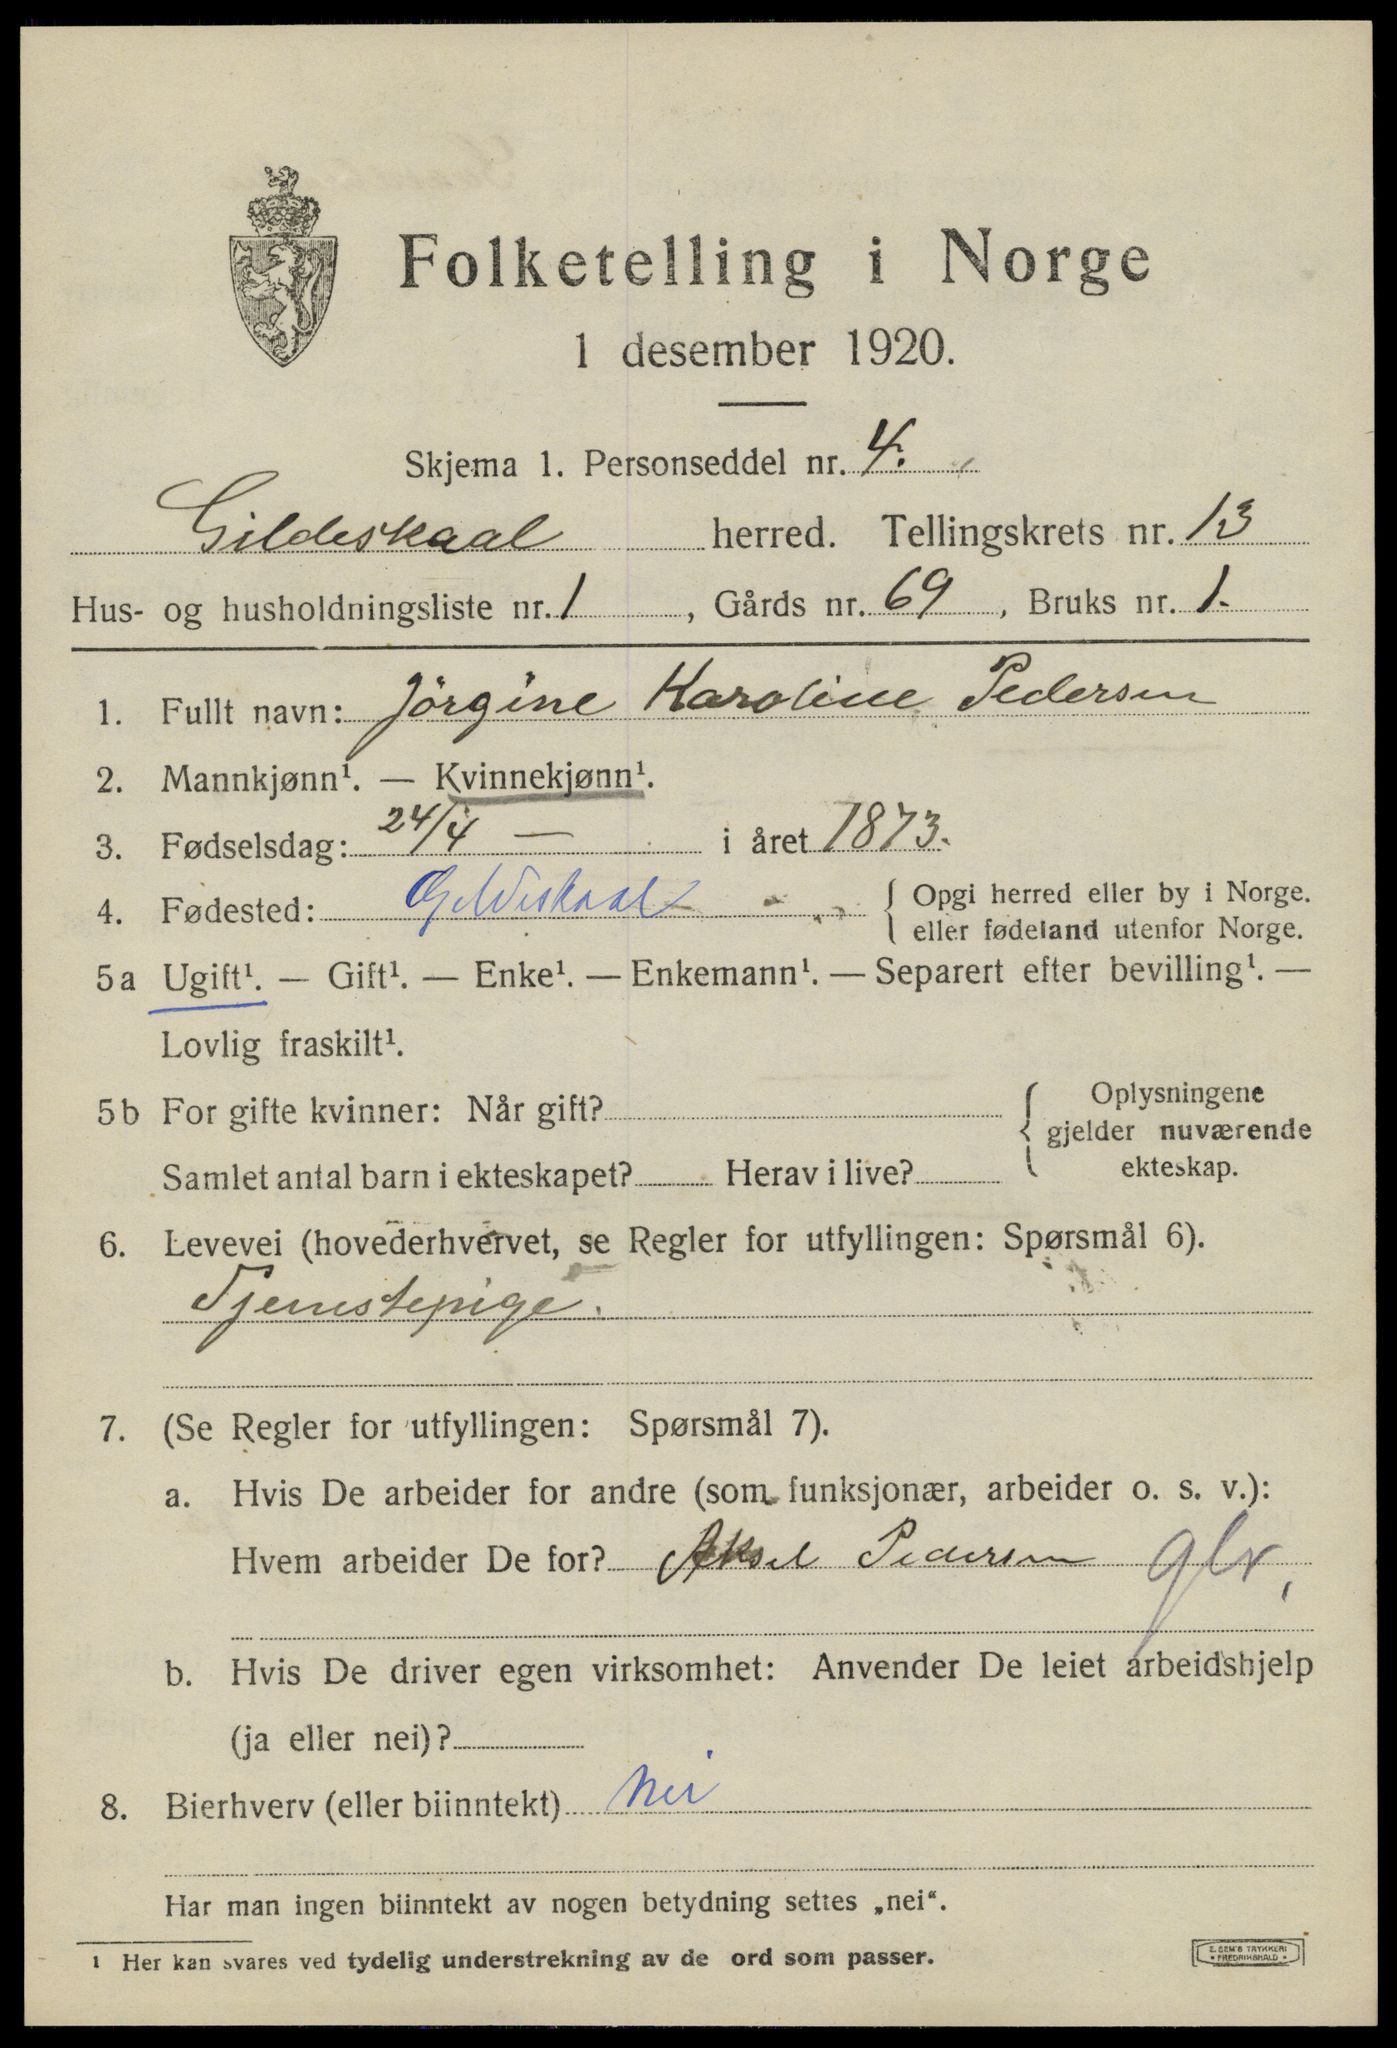 Folketelling i Norge
1 desember 1920.
Skjema 1. Personseddel nr. 4.
Gildeskaal herred. Tellingskrets nr. 13
Hus- og husholdningsliste nr. 1, Gårds nr. 69, Bruks nr. 1.
1. Fullt navn: Jörgine Karoline Pedersen
2. Mannkjønn¹. — Kvinnekjønn¹.
3. Fødselsdag: 24/4 — i året 1873.
4. Fødested: Gildeskaal { Opgi herred eller by i Norge.
eller fødeland utenfor Norge.
5a Ugift¹. — Gift¹. — Enke¹. — Enkemann¹. — Separert efter bevilling¹. —
Lovlig fraskilt¹.
5b For gifte kvinner: Når gift? { Oplysningene
gjelder nuværende
Samlet antal barn i ekteskapet? Herav i live? ekteskap.
6. Levevei (hovederhvervet, se Regler for utfyllingen: Spørsmål 6).
Tjenestepige.
7. (Se Regler for utfyllingen: Spørsmål 7).
a. Hvis De arbeider for andre (som funksjonær, arbeider o. s. v.):
Hvem arbeider De for? Aksel Pedersen
b. Hvis De driver egen virksomhet: Anvender De leiet arbeidshjelp
(ja eller nei)?
8. Bierhverv (eller biinntekt) Nei
Har man ingen biinntekt av nogen betydning settes „nei“.
¹ Her kan svares ved tydelig understrekning av de ord som passer.
E. SEM'S TRYKKERI
• FREDRIKSHALD •